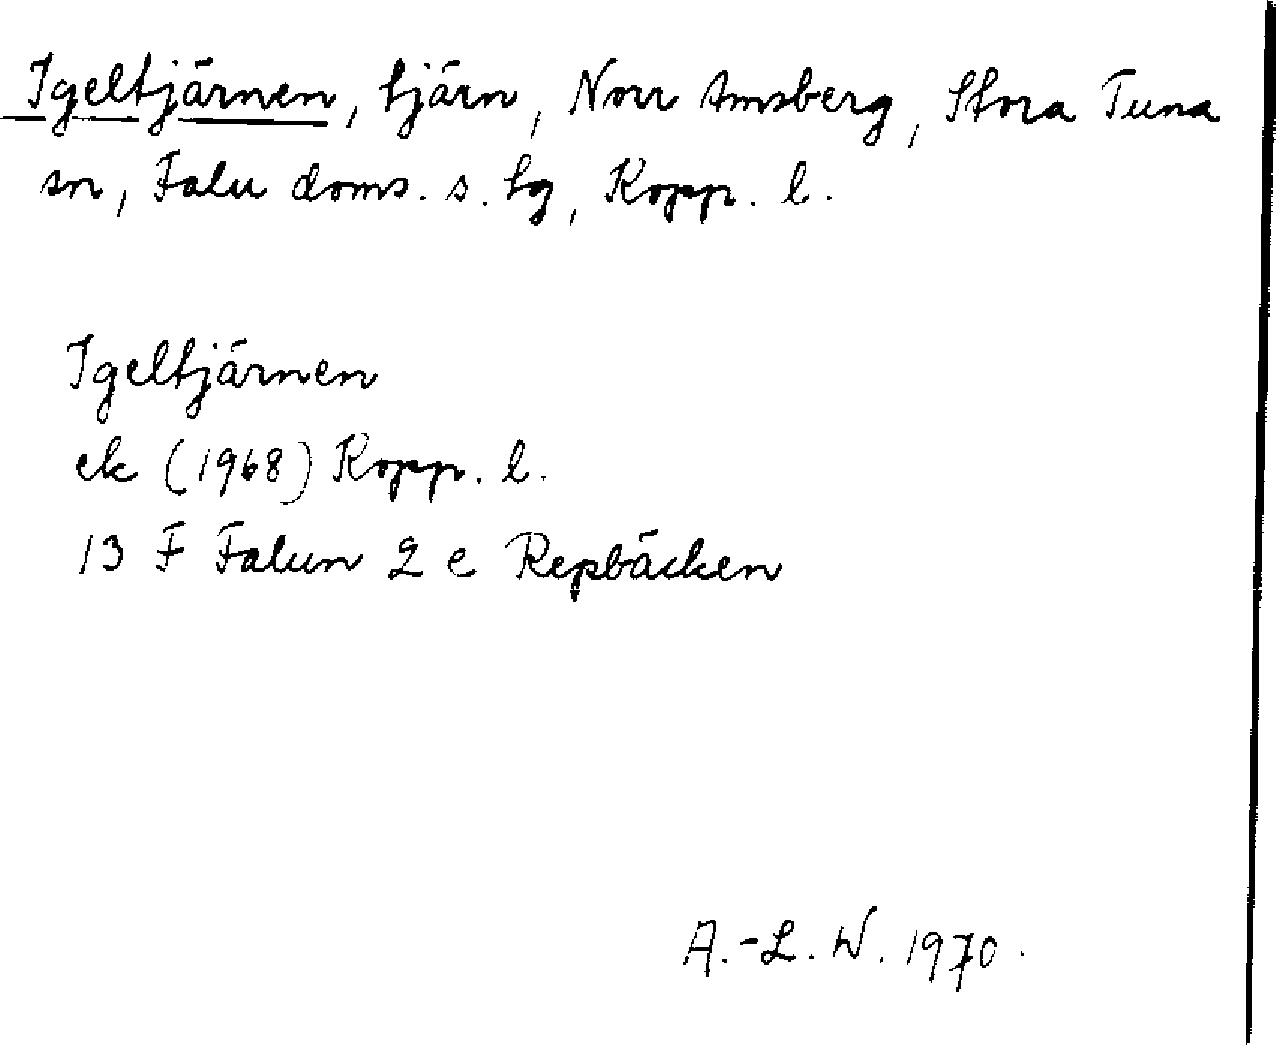 Igeltjärnen, tjärn, Norr Amsberg, Stora Tuna
sn, Falu doms. s. tg, Kopp. l.
Igeltjärnen
ek (1968) Kopp. l.
13 F Falun 2 e Repbäcken
A.-L. W. 1970.